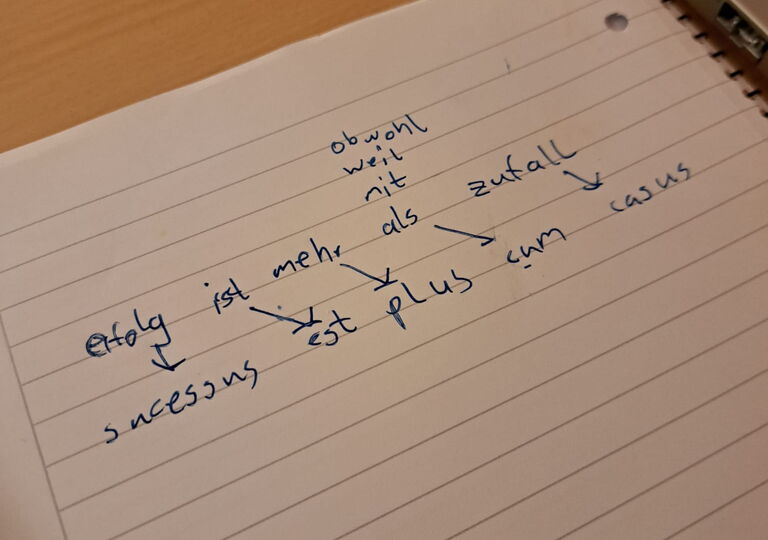 obwohl
weil
mit
erfolg ist mehr als zufall
sucessus est plus cum casus